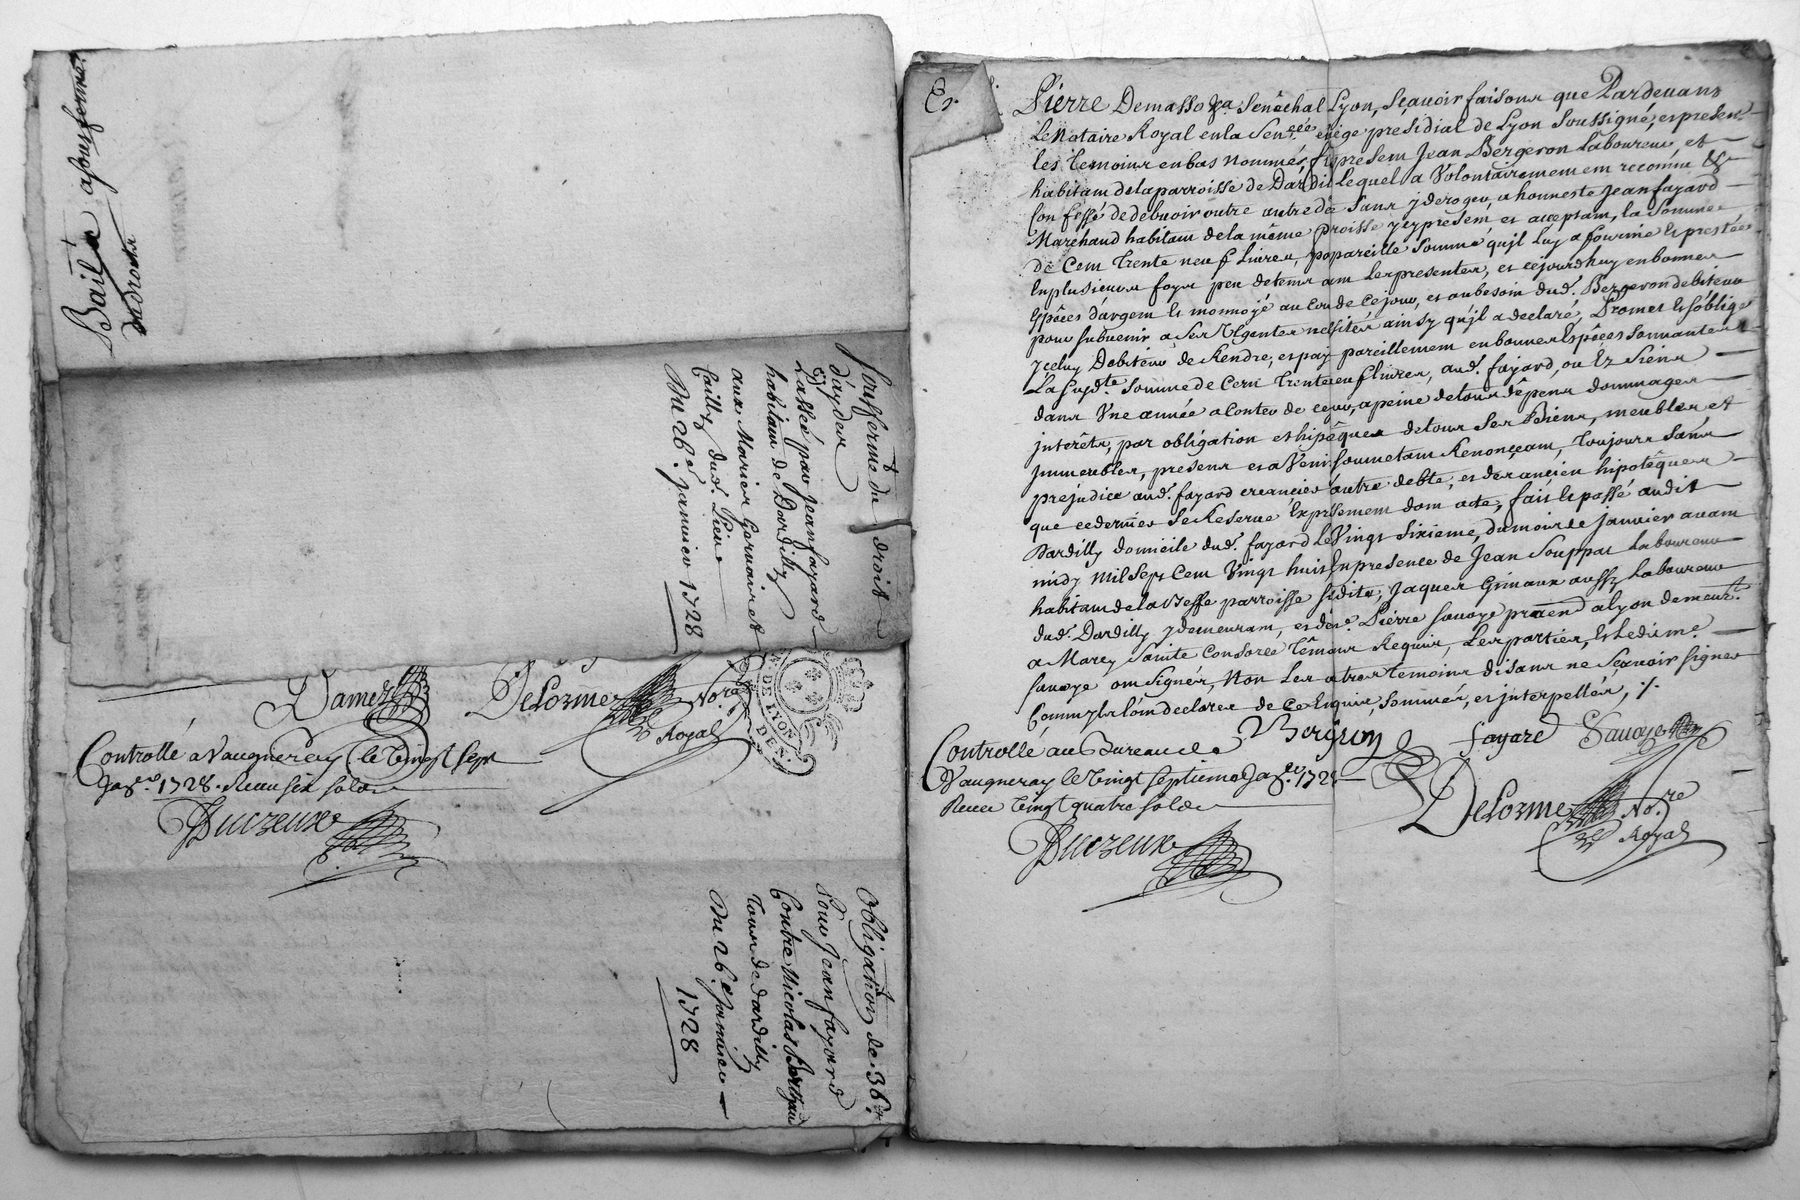 Bail a sousferme
du droit
Sousferme du droit
d'ayder
Passée par Jean fayard
habitant de Dardilly
aux Mariez Gervaire et
Cailly dud. Lieu
Du 26e. janvier 1728
Damez
DeLorme No.re
Royal
DE LYON
DEN.
Controllé a Vaugneray le vingt sept
Ja.er 1728. Receu six solds
Ducreux
Obligation de 36
Pour Jean fayard
Contre Nicolas
Tour de dardilly
Du 26e janvier
1728
Pierre Demasso &a. Senêchal Lyon, sçavoir faisons que Pardevant
Le Notaire Royal en la Sen.cée et siége presidial de Lyon soussigné, et presens
les temoins en bas nommés, fut present Jean Bergeron Laboureur, et
habitant de la parroisse de Dardilly lequel a Volontairement reconnu &
Confessé de debvoir outre autre dée sans y deroger, a honneste Jean fayard
Marchand habitant de la même proisse icy present et acceptant, la somme
de Cent trente neuf Livres, pr pareille somme qu'jl luy a fournie et prestée
en plusieurs foys peu de tems avant les presentes, et cejourdhuy en bonnes
Espêces d'argent et monnoyé au cour de ce jour, et au besoin dud. Bergeron debiteur
pour subvenir a ses Urgentes nessitéz ainsy qu'jl a declaré, Promet et s'oblige
yceluy Debiteur de Rendre, et payer pareillement en bonnes Espêces sonnantes
La susd.te somme de Cent trente neuf livres, aud. fayard, ou Ez siens
dans Une année a Conter de ce jour, a peine de tous dêpens dommages
interêts, par obligation et hipotêques de tous ses Biens, meubles et
jmmeubles, presens et a Venir soumettant Renonçeant, toujours sans
prejudice aud. fayard creancier d'autre debte, et des ancien hipotêques
que ce dernier se Reserve Expressement dont acte, fait et passé audit
Dardilly domicile dud. fayard Le Vingt sixieme, du mois de janvier avant
midy Mil Sept Cent Vingt huit En presence de Jean Souppat Laboureur
habitant de la ditte parroisse, Jaques Grimaux aussy Laboureur
dud. Dardilly y demeurant, et de Sr. Pierre Savoye praen a Lyon demeur.t
a Marcy Sainte Consorce têmoins Requis, Les parties, et Ledit me.
Savoye ont signés, Non Les autres temoins disans ne sçavoir signer
Comme ils l'ont declarés de ce Enquis, sommés, et interpellés, ./.
Bergeron fayard Savoye
Controllé au Bureau de
Vaugneray le Vingt septieme Ja.er 1728
Receu Vingt quatre solds
Ducreux
DeLorme No.re
Royal